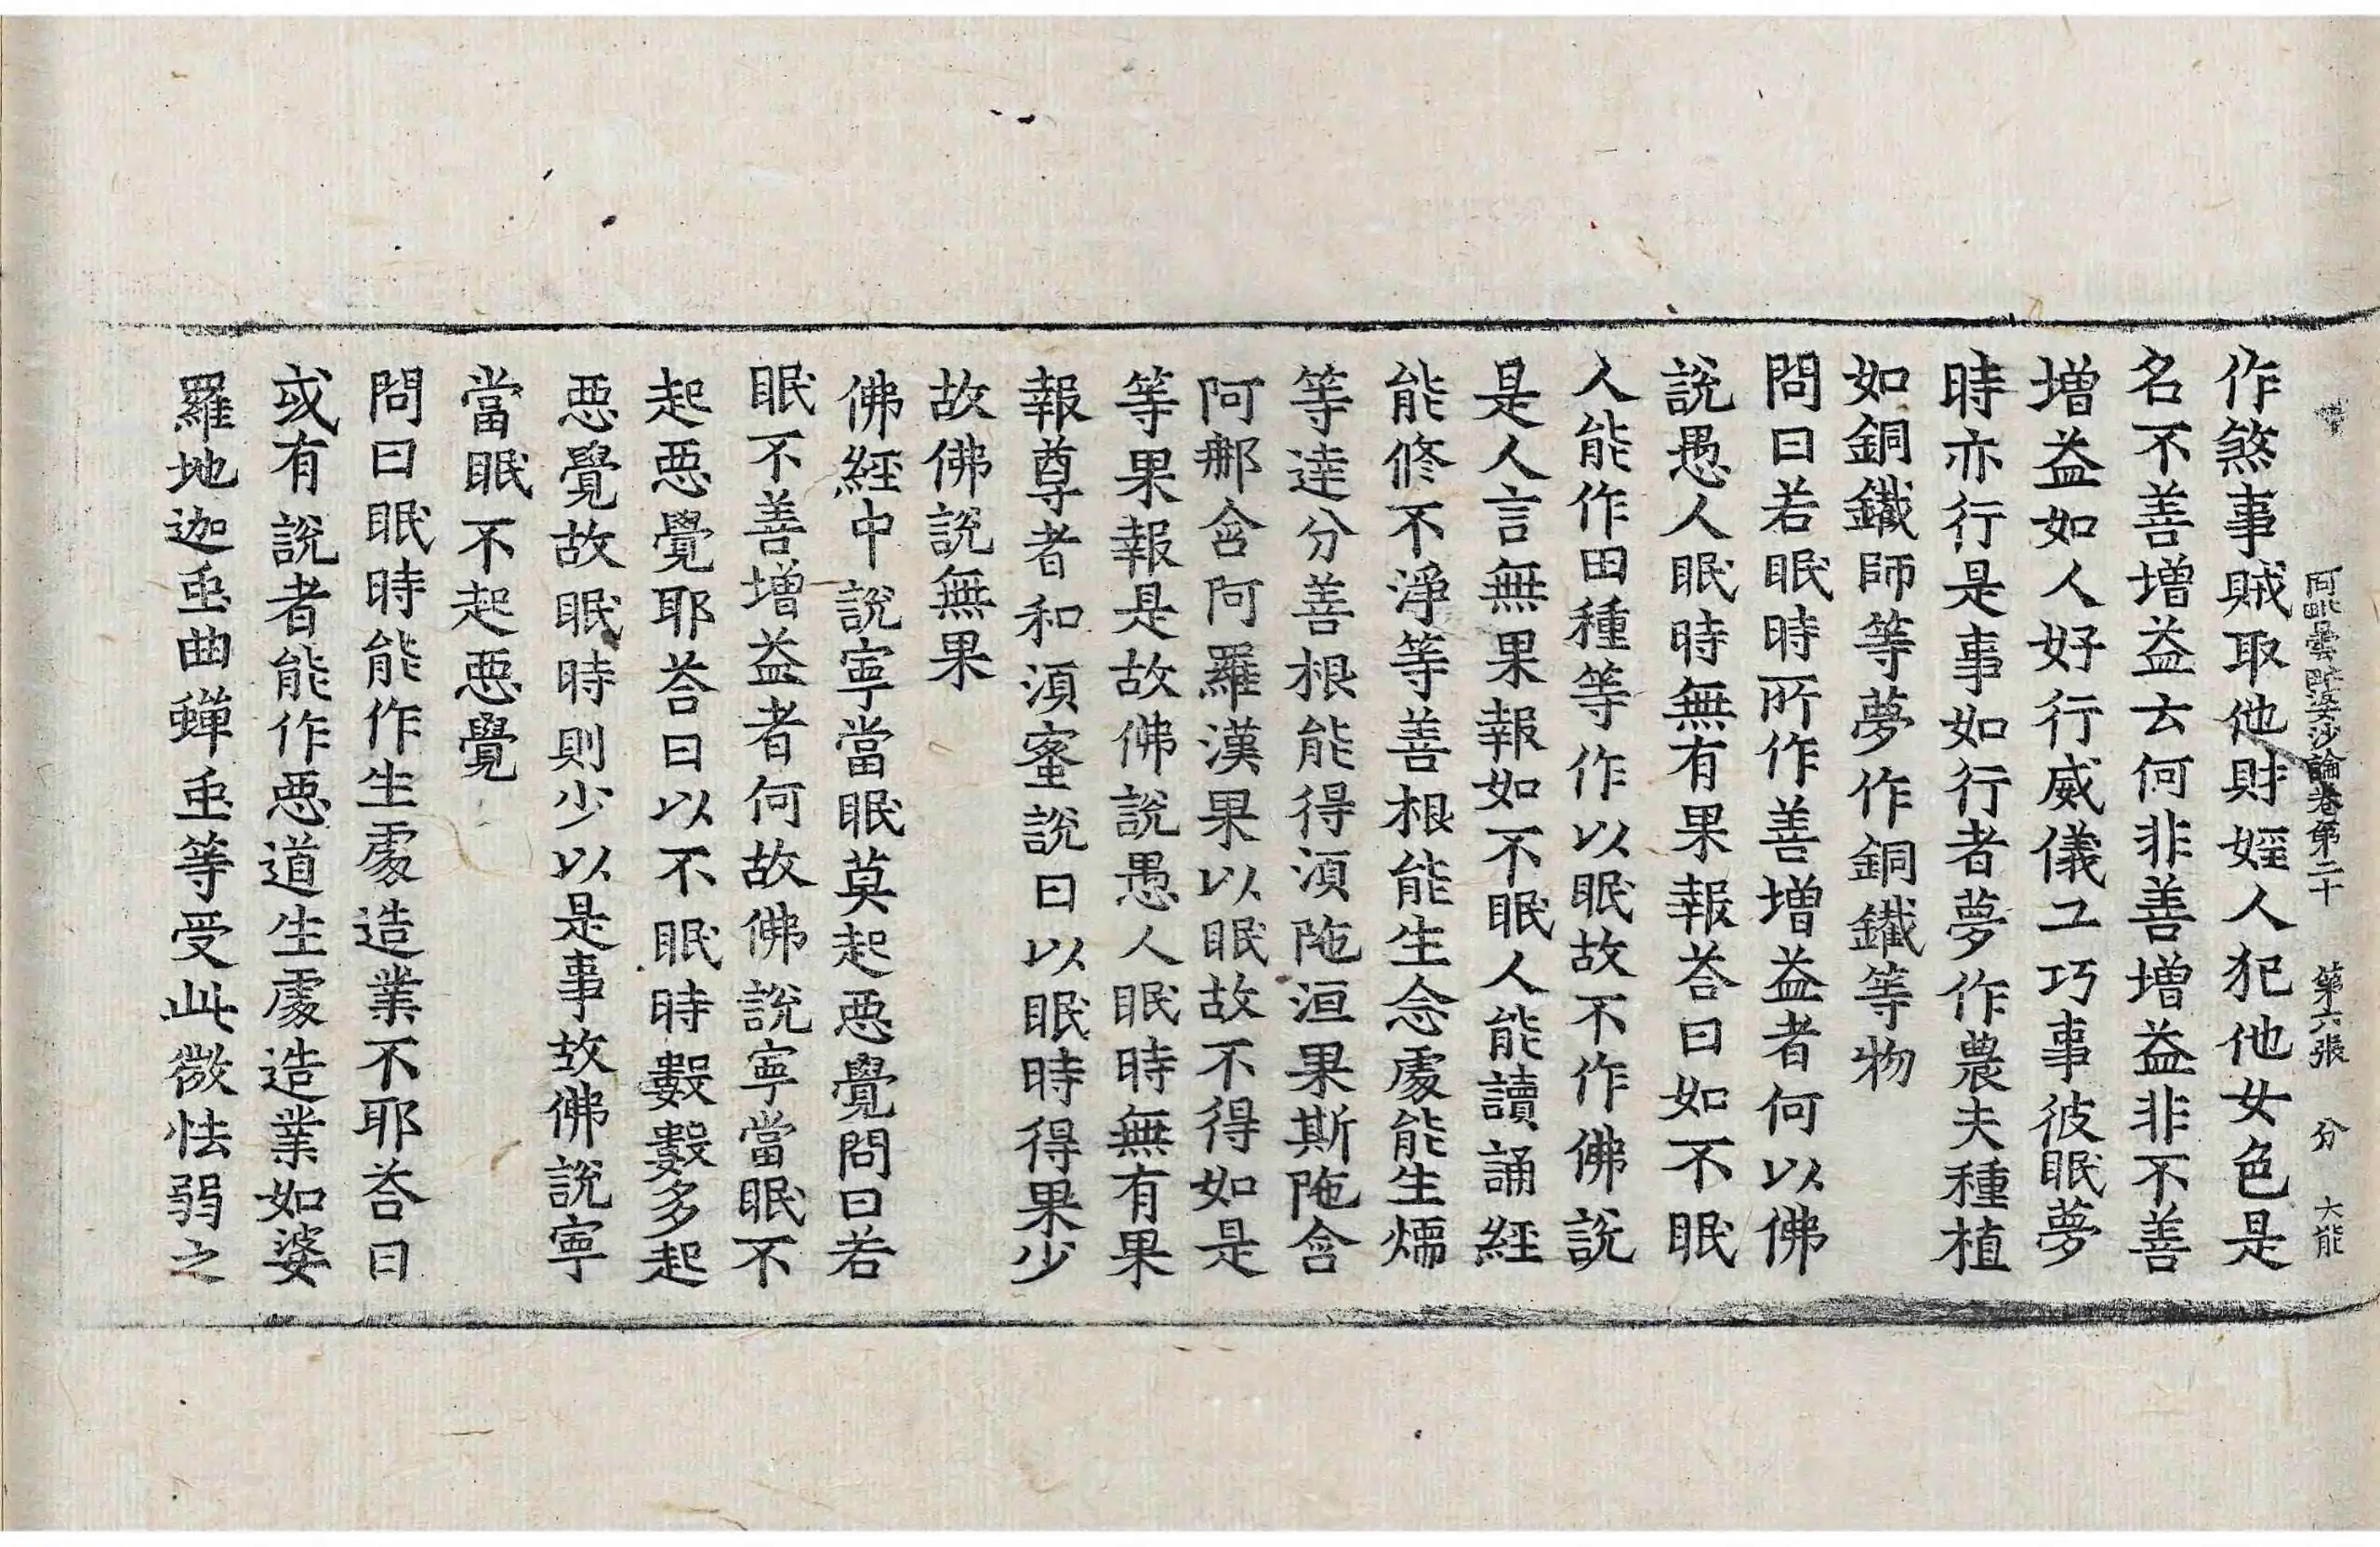 阿毗曇毗婆沙論卷第二十　第六張　分　大能
作煞事賊取他財婬人犯他女色是
名不善增益云何非善增益非不善
增益如人好行威儀工巧事彼眠夢
時亦行是事如行者夢作農夫種植
如銅鐵師等夢作銅鐵等物
問曰若眠時所作善增益者何以佛
說愚人眠時無有果報荅曰如不眠
人能作田種等作以眠故不作佛說
是人言無果報如不眠人能讀誦經
能修不淨等善根能生念處能生燸
等達分善根能得湏陁洹果斯陁含
阿郍含阿羅漢果以眠故不得如是
等果報是故佛說愚人眠時無有果
報尊者和湏蜜說曰以眠時得果少
故佛說無果
佛經中說寧當眠莫起惡覺問曰若
眠不善增益者何故佛說寧當眠不
起惡覺耶荅曰以不眠時數數多起
惡覺故眠時則少以是事故佛說寧
當眠不起惡覺
問曰眠時能作生處造業不耶荅曰
或有說者能作惡道生處造業如婆
羅地迦䖝曲蟬䖝等受此微怯弱之